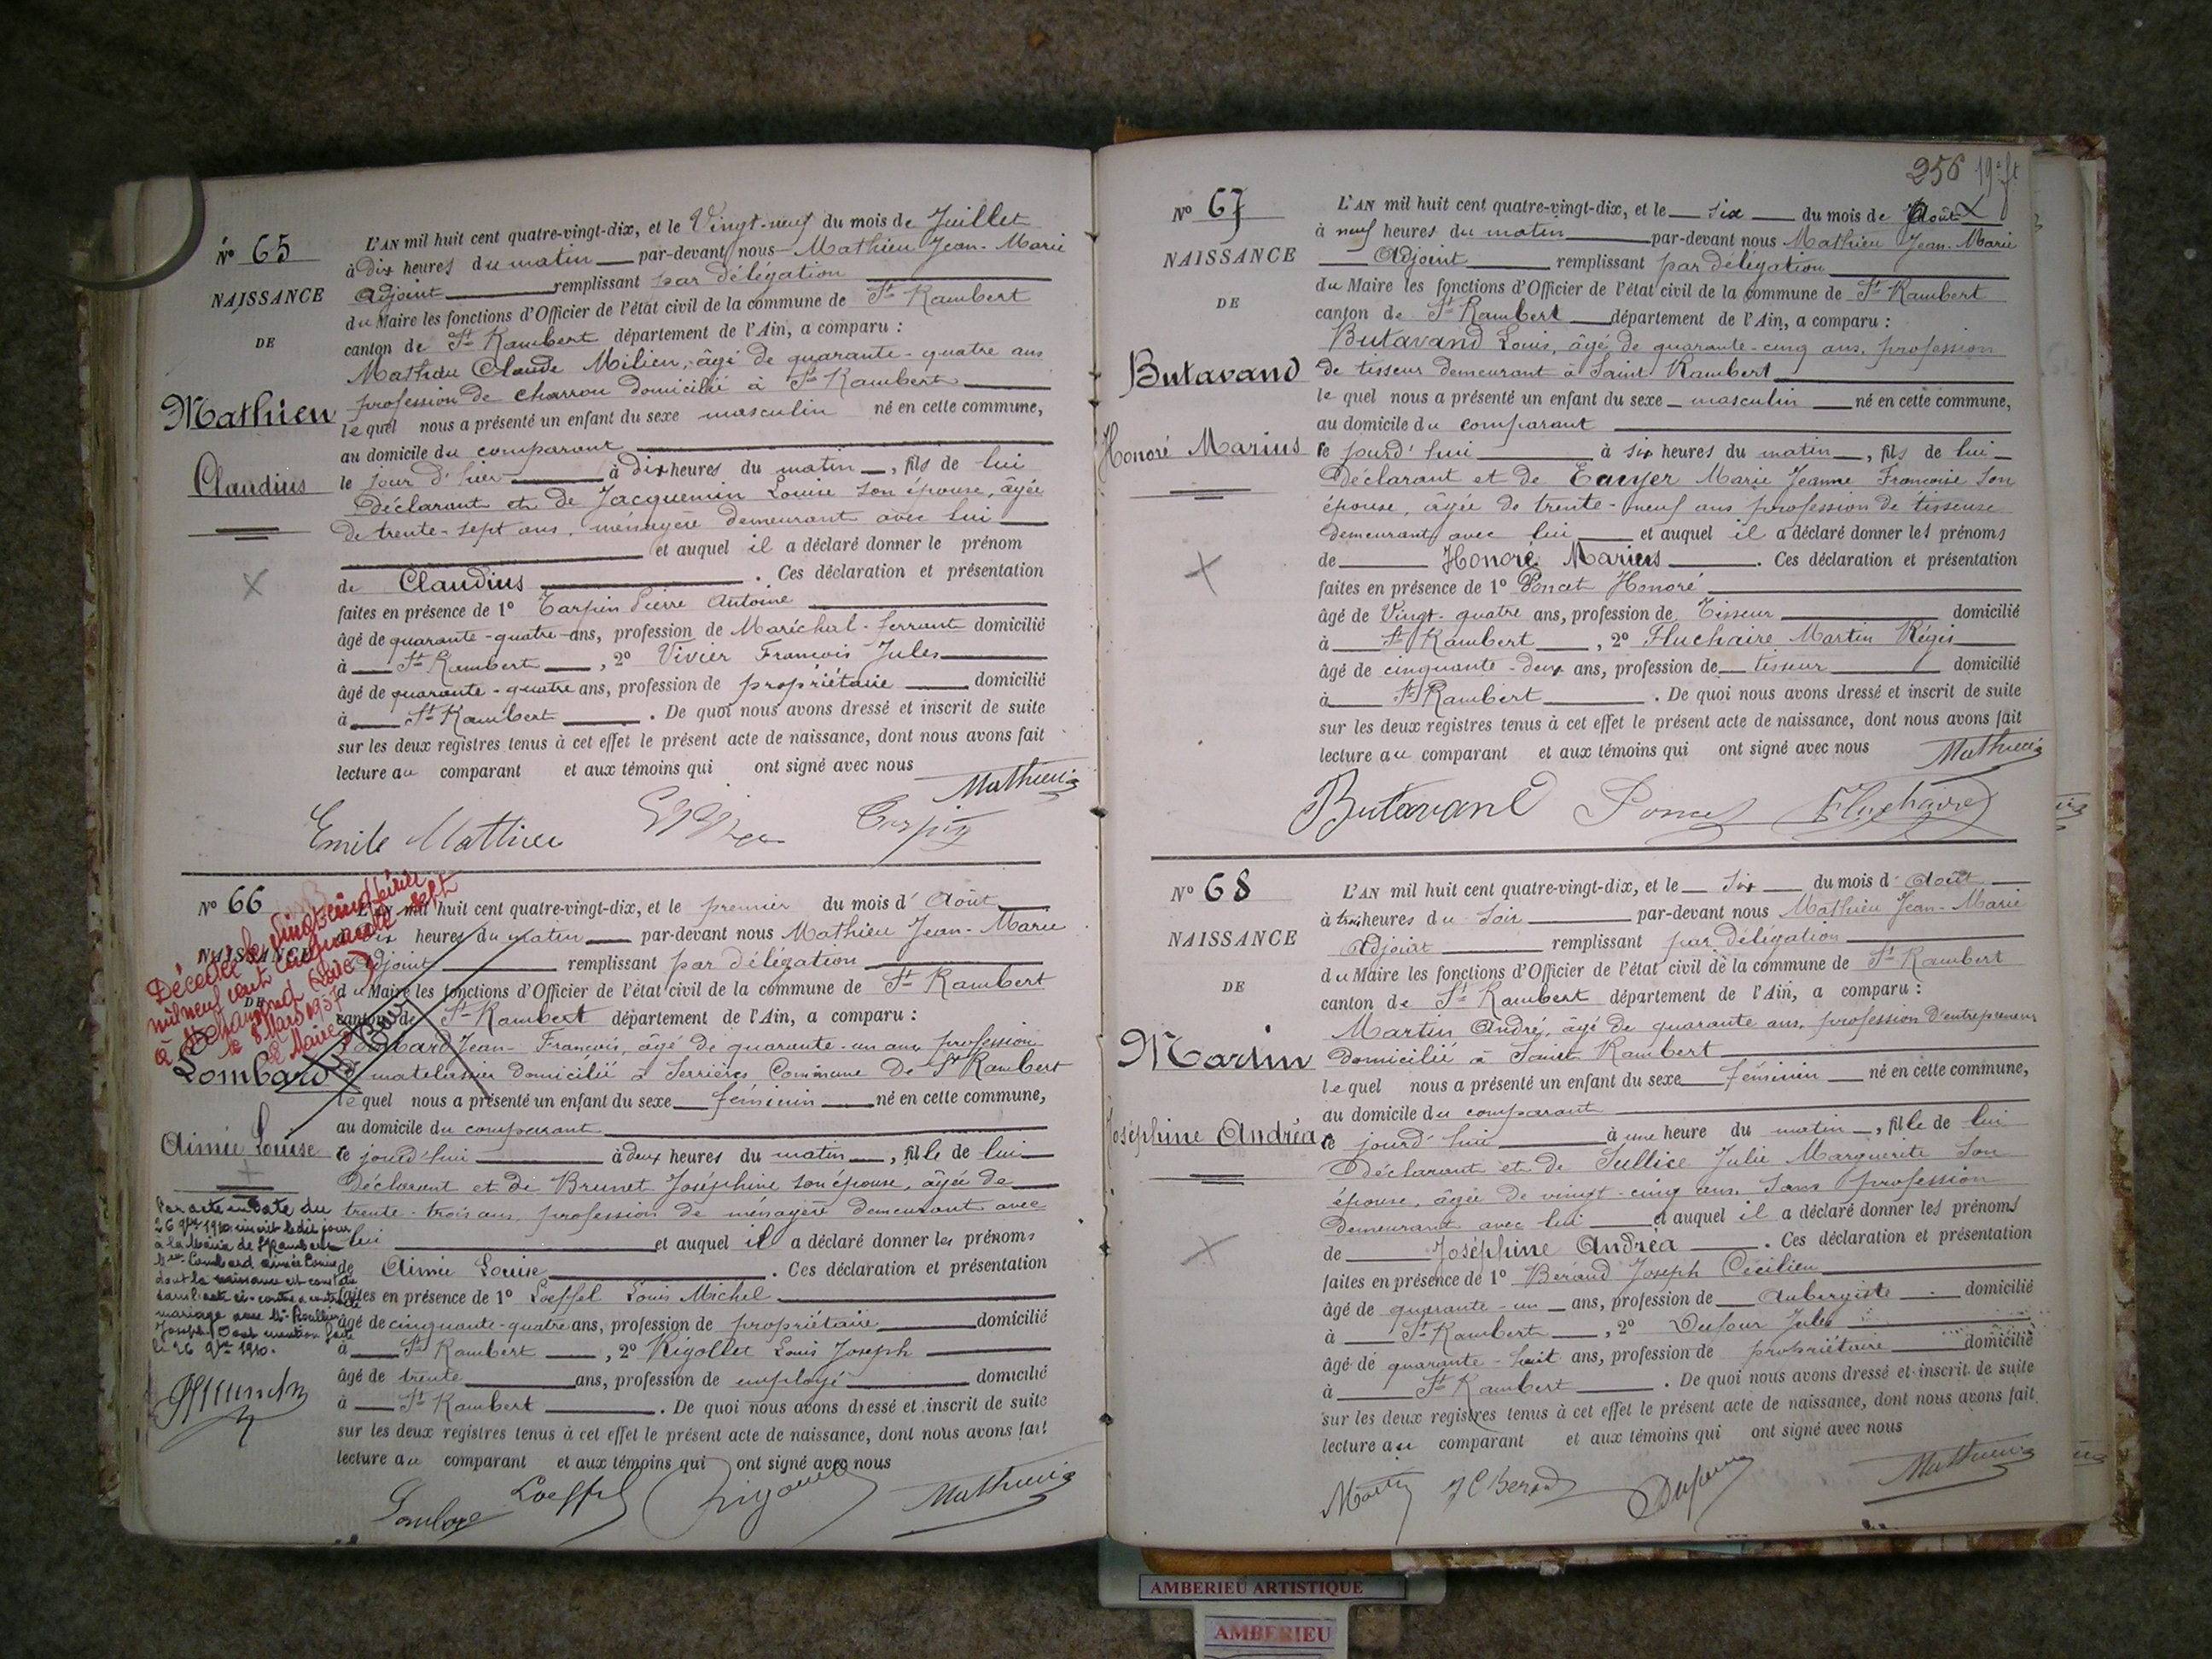 N° 65
NAISSANCE
DE
Mathieu
Claudius
L'AN mil huit cent quatre-vingt-dix, et le Vingt-neuf du mois de Juillet
à dix heures du matin par-devant nous Mathieu Jean-Marie
Adjoint remplissant par délégation
du Maire les fonctions d'Officier de l'état civil de la commune de St Rambert
canton de St Rambert département de l'Ain, a comparu :
Mathieu Claude Milien, âgé de quarante-quatre ans
profession de charron domicilié à St Rambert
lequel nous a présenté un enfant du sexe masculin né en cette commune,
au domicile du comparant
le jour d'hier à dix heures du matin, fils de lui
Déclarant et de Jacquemin Louise son épouse, âgée
de trente-sept ans, ménagère demeurant avec lui
et auquel il a déclaré donner le prénom
de Claudius. Ces déclaration et présentation
faites en présence de 1° Tarpin Pierre Antoine
âgé de quarante-quatre ans, profession de Maréchal-ferrant domicilié
à St Rambert, 2° Vivier François Jules
âgé de quarante-quatre ans, profession de propriétaire domicilié
à St Rambert. De quoi nous avons dressé et inscrit de suite
sur les deux registres tenus à cet effet le présent acte de naissance, dont nous avons fait
lecture au comparant et aux témoins qui ont signé avec nous
Mathieu
Emile Mathieu Tarpin
N° 66
NAISSANCE
DE
Lombard
Aimée Louise
Décédée le vingt cinq février
mil neuf cent cinquante sept
à
le 8 Mars 1957
le Maire
Par acte en date du
26 9bre 1910 inscrit ledit jour
à la Mairie de St Rambert
Lombard Aimée Louise
dont la naissance est constatée
dans l'acte ci-contre a contracté
mariage avec
Joseph. Dont mention faite
le 26 9bre 1910.
L'AN mil huit cent quatre-vingt-dix, et le premier du mois d'Août
à dix heures du matin par-devant nous Mathieu Jean-Marie
Adjoint remplissant par délégation
du Maire les fonctions d'Officier de l'état civil de la commune de St Rambert
canton de St Rambert département de l'Ain, a comparu :
Lombard Jean-François, âgé de quarante-un ans, profession
de matelassier domicilié à Serrières Commune de St Rambert
lequel nous a présenté un enfant du sexe féminin né en cette commune,
au domicile du comparant
ce jourd'hui à deux heures du matin, fille de lui
Déclarant et de Brunet Joséphine son épouse, âgée de
trente-trois ans, profession de ménagère demeurant avec
lui et auquel il a déclaré donner les prénoms
de Aimée Louise. Ces déclaration et présentation
faites en présence de 1° Loeffel Louis Michel
âgé de cinquante-quatre ans, profession de propriétaire domicilié
à St Rambert, 2° Rigollet Louis Joseph
âgé de trente ans, profession de employé domicilié
à St Rambert. De quoi nous avons dressé et inscrit de suite
sur les deux registres tenus à cet effet le présent acte de naissance, dont nous avons fait
lecture au comparant et aux témoins qui ont signé avec nous
Lombard Loeffel Rigollet Mathieu
256 19e ft
N° 67
NAISSANCE
DE
Butavand
Honoré Marius
L'AN mil huit cent quatre-vingt-dix, et le six du mois de Août
à neuf heures du matin par-devant nous Mathieu Jean-Marie
Adjoint remplissant par délégation
du Maire les fonctions d'Officier de l'état civil de la commune de St Rambert
canton de St Rambert département de l'Ain, a comparu :
Butavand Louis, âgé de quarante-cinq ans, profession
de tisseur demeurant à Saint Rambert
lequel nous a présenté un enfant du sexe masculin né en cette commune,
au domicile du comparant
ce jourd'hui à six heures du matin, fils de lui
Déclarant et de Marie Jeanne Françoise son
épouse, âgée de trente-neuf ans profession de tisseuse
demeurant avec lui et auquel il a déclaré donner les prénoms
de Honoré Marius. Ces déclaration et présentation
faites en présence de 1° Poncet Honoré
âgé de Vingt-quatre ans, profession de Tisseur domicilié
à St Rambert, 2° Fluchaire Martin Régis
âgé de cinquante-deux ans, profession de tisseur domicilié
à St Rambert. De quoi nous avons dressé et inscrit de suite
sur les deux registres tenus à cet effet le présent acte de naissance, dont nous avons fait
lecture au comparant et aux témoins qui ont signé avec nous
Mathieu
Butavand Poncet Fluchaire
N° 68
NAISSANCE
DE
Martin
Joséphine Andréa
L'AN mil huit cent quatre-vingt-dix, et le Six du mois d'Août
à trois heures du Soir par-devant nous Mathieu Jean-Marie
Adjoint remplissant par délégation
du Maire les fonctions d'Officier de l'état civil de la commune de St Rambert
canton de St Rambert département de l'Ain, a comparu :
Martin André, âgé de quarante ans, profession d'entrepreneur
domicilié à Saint Rambert
lequel nous a présenté un enfant du sexe féminin né en cette commune,
au domicile du comparant
ce jourd'hui à une heure du matin, fille de lui
Déclarant et de Sullice Julie Marguerite son
épouse, âgée de vingt-cinq ans, sans profession
demeurant avec lui et auquel il a déclaré donner les prénoms
de Joséphine Andréa. Ces déclaration et présentation
faites en présence de 1° Beraud Joseph Cécilien
âgé de quarante-un ans, profession de Aubergiste domicilié
à St Rambert, 2° Dufour Jules
âgé de quarante-huit ans, profession de propriétaire domicilié
à St Rambert. De quoi nous avons dressé et inscrit de suite
sur les deux registres tenus à cet effet le présent acte de naissance, dont nous avons fait
lecture au comparant et aux témoins qui ont signé avec nous
Martin J C Beraud Dufour Mathieu
AMBERIEU ARTISTIQUE
AMBERIEU